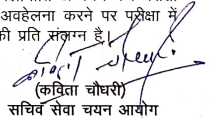 अवहेलना करने पर परीक्षा में
की प्रति संलग्न है।
(कविता चौधरी)
सचिव सेवा चयन आयोग